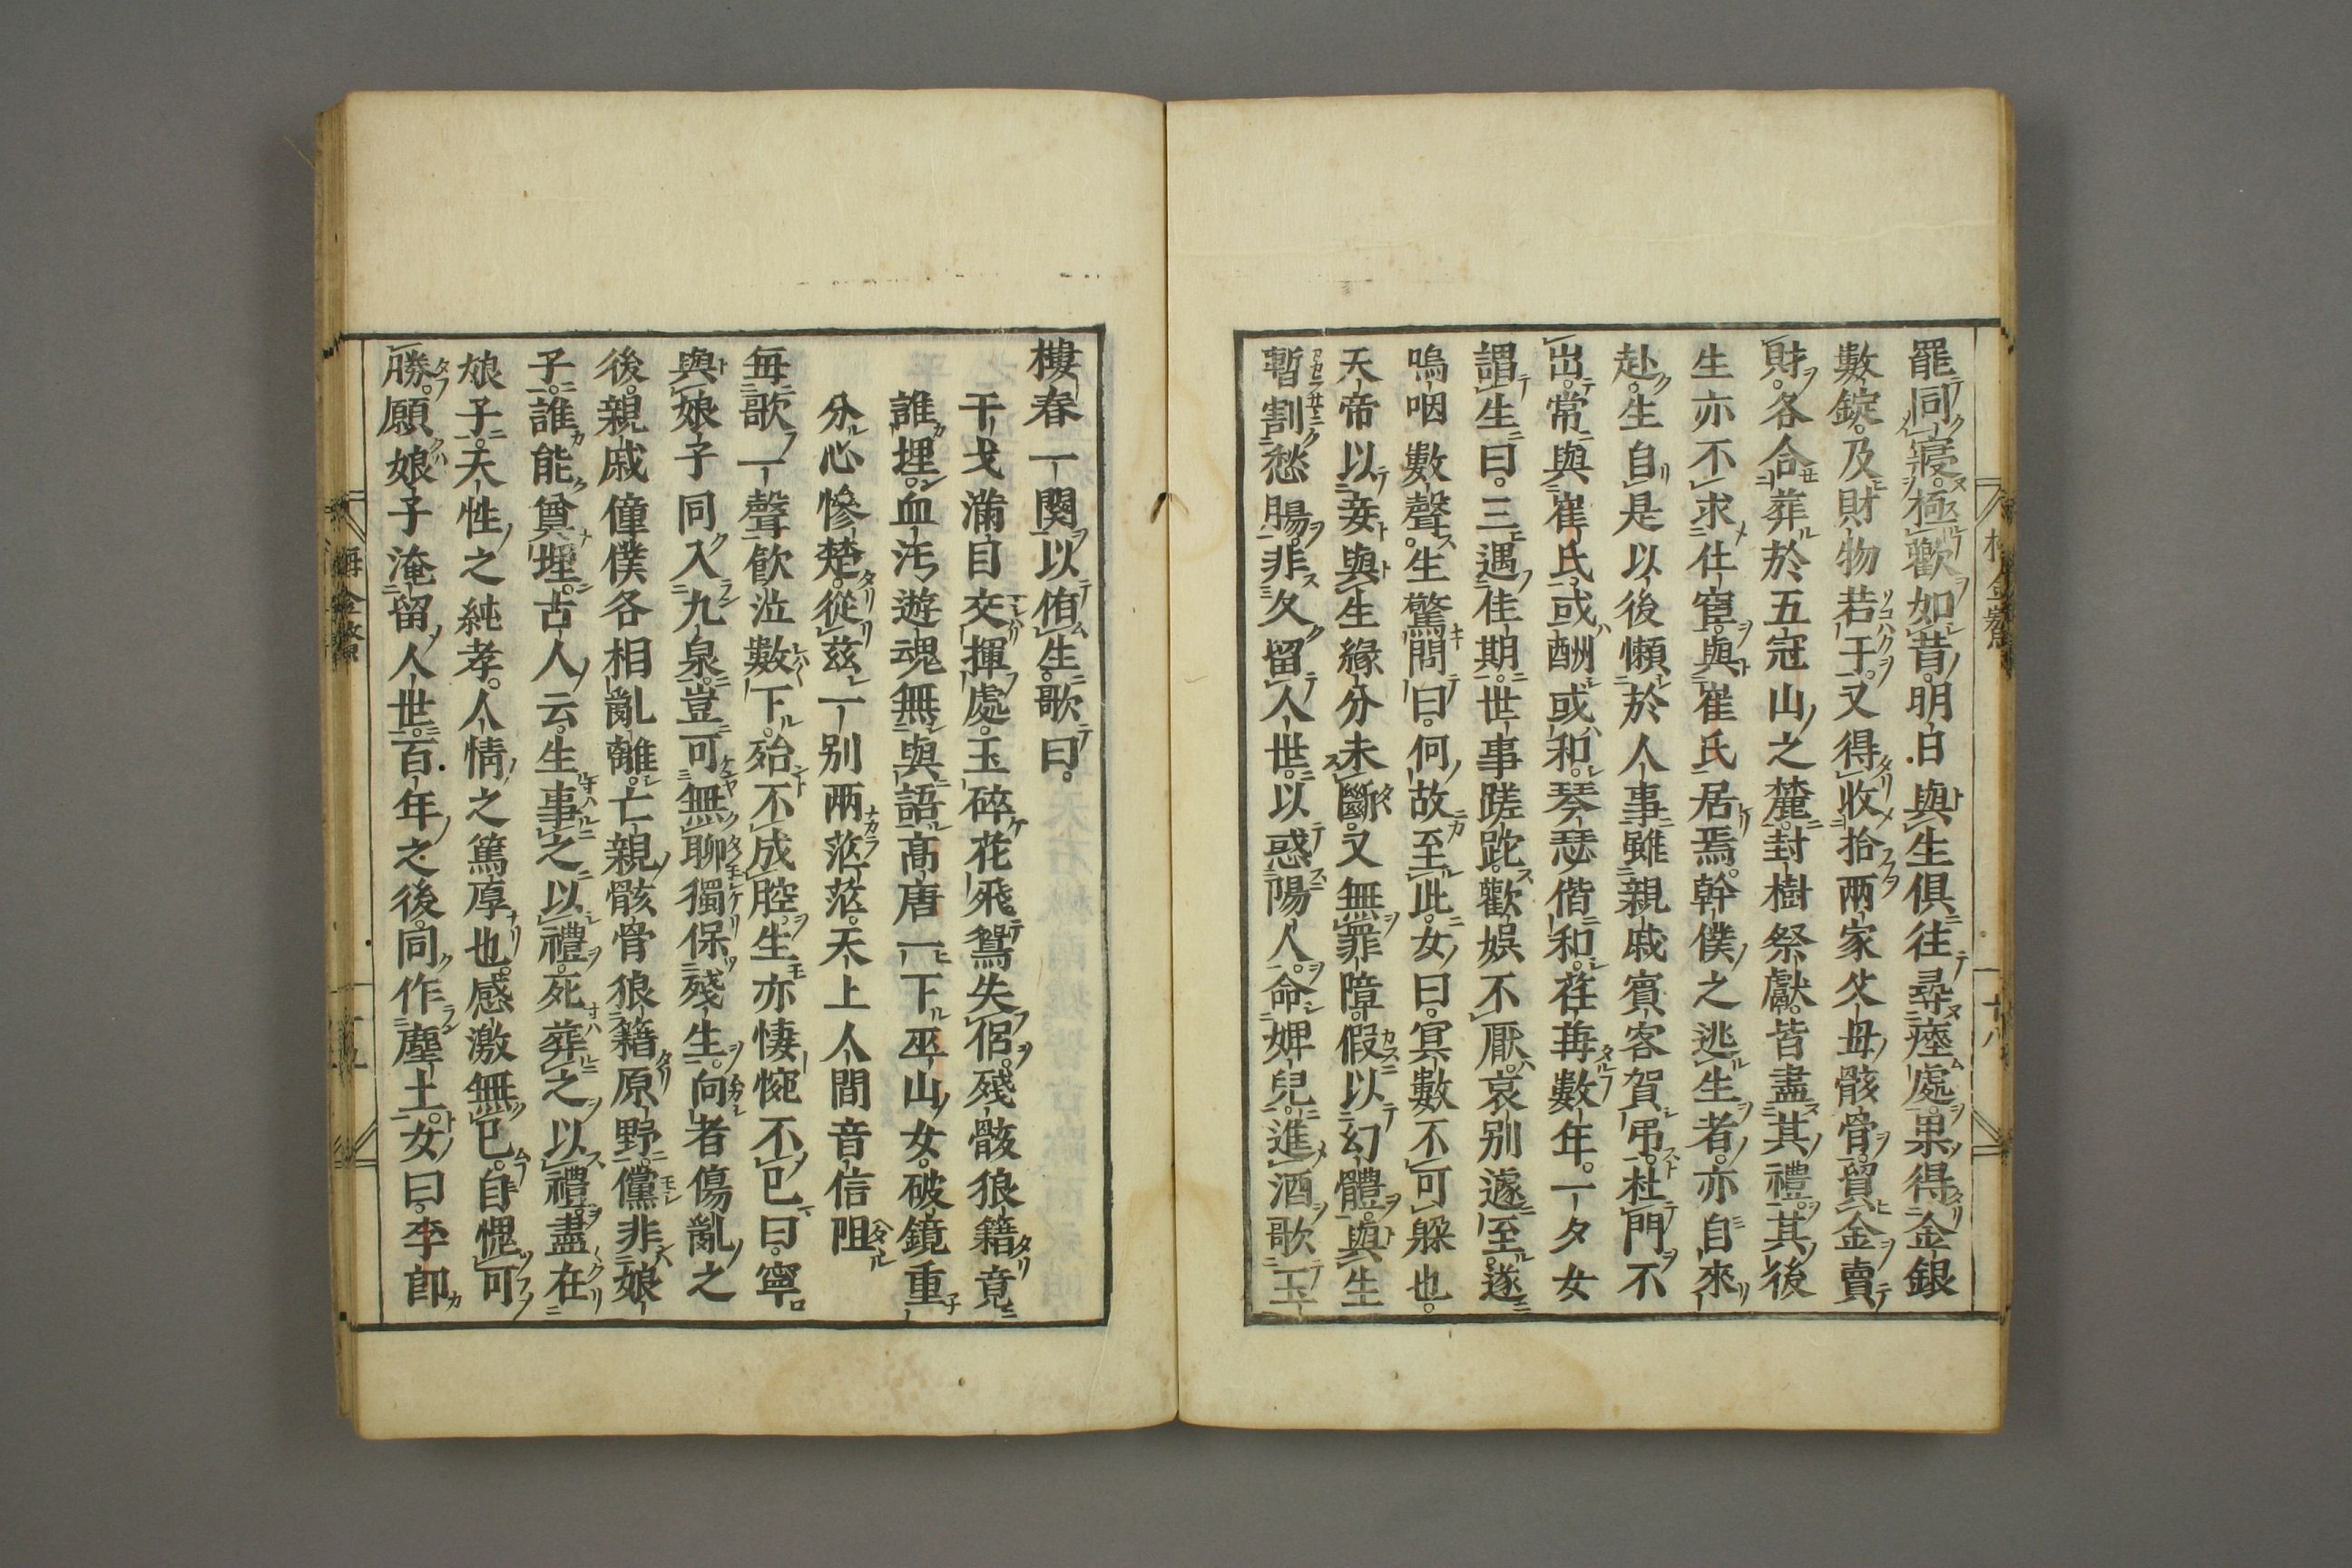 罷同寢極歡如昔明日與生俱往尋瘞處果得金銀
數錠及財物若干又得收拾兩家父母骸骨貿金賣
財各合葬於五冠山之麓封樹祭獻皆盡其禮其後
生亦不求仕宦與崔氏居焉幹僕之逃生者亦自來
赴生自是以後懶於人事雖親戚賓客賀吊杜門不
出常與崔氏或酬或和琴瑟偕和荏苒數年一夕女
謂生曰三遇佳期世事蹉跎歡娛不厭哀別遽至遂
嗚咽數聲生驚問曰何故至此女曰冥數不可躱也
天帝以妾與生緣分未斷又無罪障假以幻體與生
暫割愁腸非久留人世以惑陽人命婢兒進酒歌玉
樓春一闋以侑生歌曰
干戈滿目交揮處玉碎花飛鴛失侶殘骸狼籍竟
誰埋血汚遊魂無與語高唐一下巫山女破鏡重
分心慘楚從茲一別兩茫茫天上人間音信阻
每歌一聲飮泣數下殆不成腔生亦悽惋不已曰寧
與娘子同入九泉豈可無聊獨保殘生向者傷亂之
後親戚僮僕各相亂離亡親骸骨狼籍原野儻非娘
子誰能奠埋古人云生事之以禮死葬之以禮盡在
娘子天性之純孝人情之篤厚也感激無已自愧可
勝願娘子淹留人世百年之後同作塵土女曰李郎